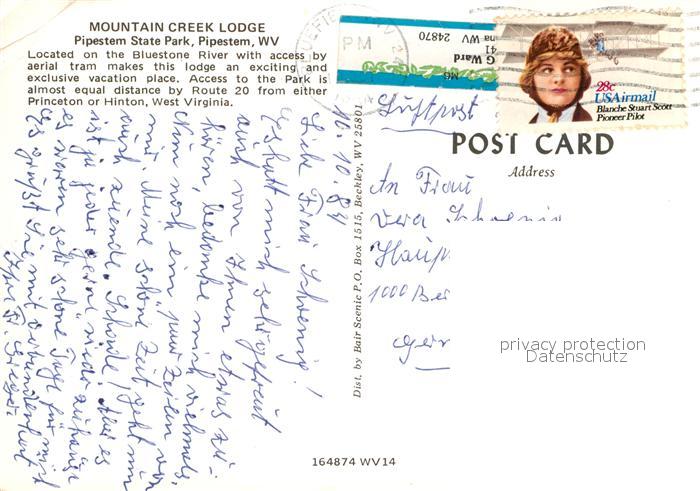 MOUNTAIN CREEK LODGE
Pipestem State Park, Pipestem, WV
Located on the Bluestone River with access by
aerial tram makes this lodge an exciting and
exclusive vacation place. Access to the Park is
almost equal distance by Route 20 from either
Princeton or Hinton, West Virginia.
PM
G Ward
41
na WV 24870
28c
USAirmail
Blanche Stuart Scott
Pioneer Pilot
Luftpost
POST CARD
Address
An Frau
Vera
Haup
1000 Ber
Ger
privacy protection
Datenschutz
Dist. by Bair Scenic P.O. Box 1515, Beckley, WV 25801
10.10.84
Liebe Frau Schoenig!
Es hatt mich sehr gefreut
auch von Ihnen etwas zu
hören, bedanke mich vielmals.
noch ein paar Zeilen von
mir. Meine schöne Zeit geht nun
auch zuende. Schade! Aber es
ist ja jeder gern wieder zuhause
es waren sehr schöne Tage für mich
Es grüßt Sie mit
Ihre Fr.
164874 WV14